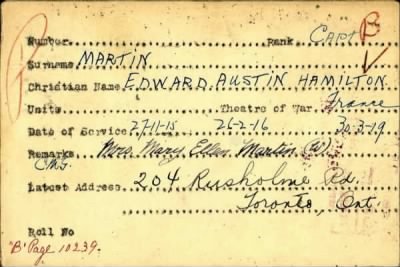 Number Rank CAPT B
Surname MARTIN
Christian Name EDWARD AUSTIN HAMILTON
Units Theatre of War France
Date of Service 27-11-15 26-2-16 30-3-19
Remarks Mrs. Mary Ellen Martin (W)
Latest Address 204 Rusholme Rd.
Toronto, Ont.
Roll No
"B" Page 10239.